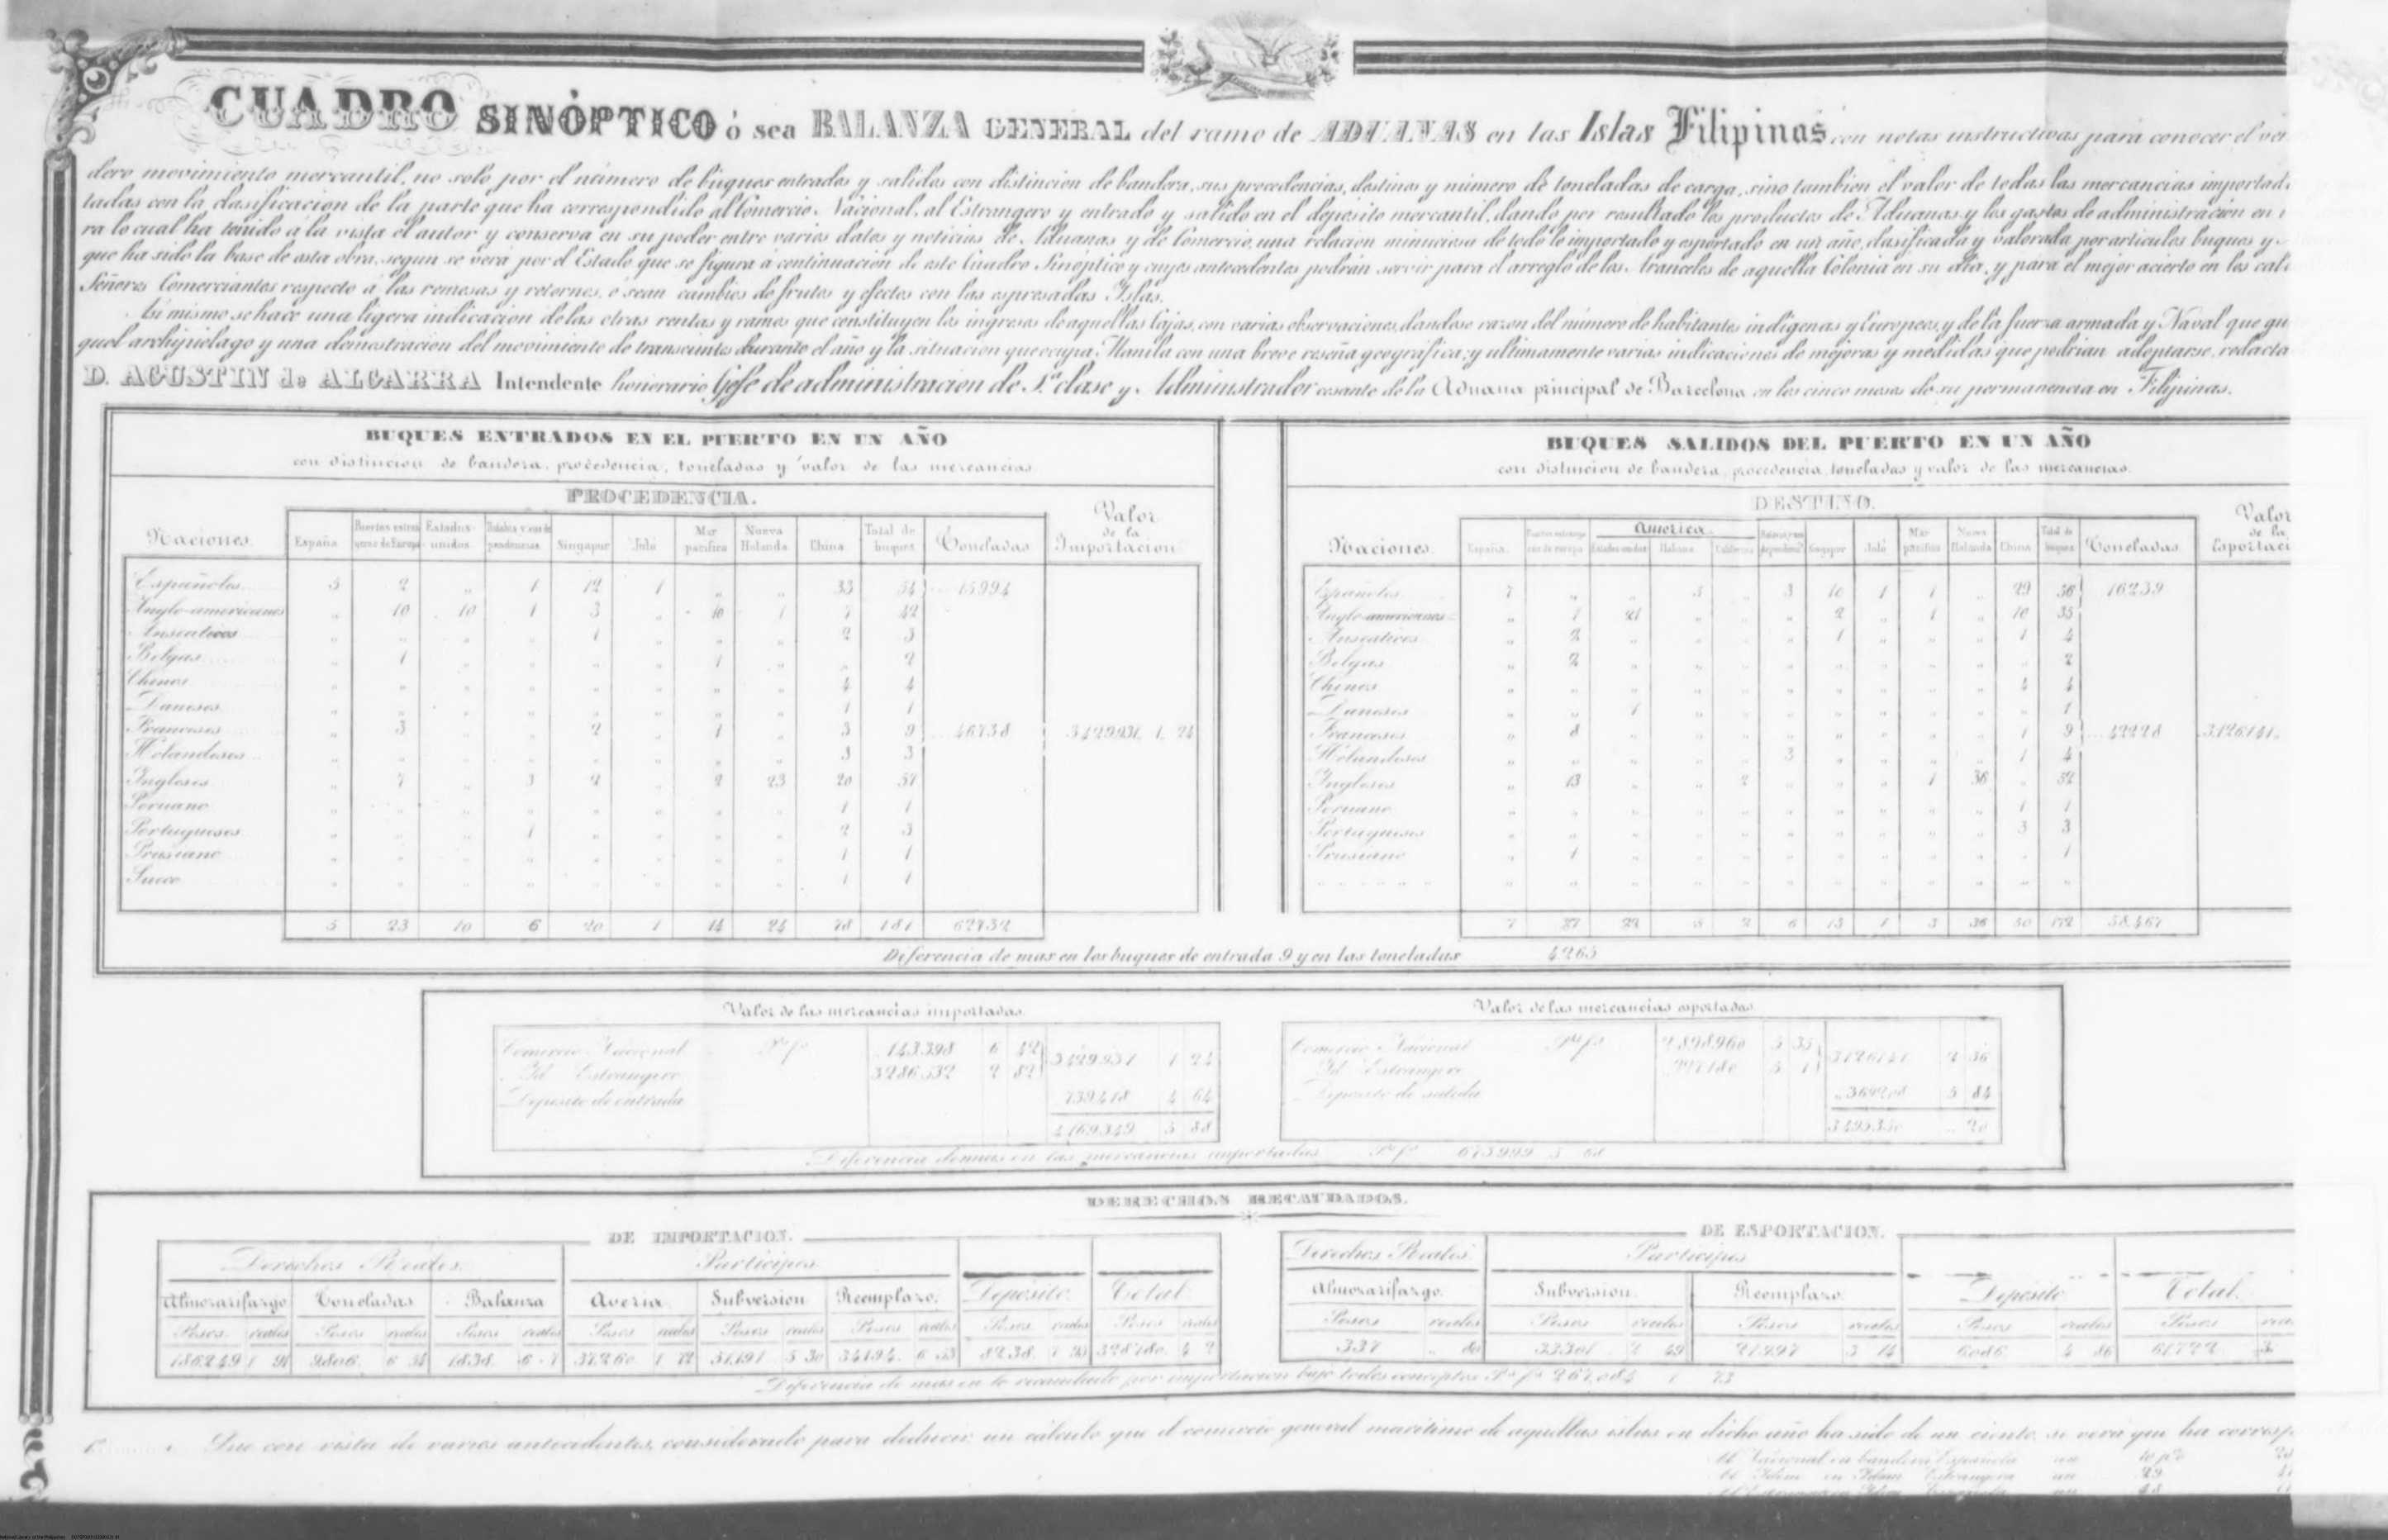 CUADRO SINÓPTICO ó sea BALANZA GENERAL del ramo de ADUANAS en las Islas Filipinas con notas instructivas para conocer el ver
dero movimiento mercantil, no solo por el número de buques entrados y salidos con distincion de bandera, sus procedencias, destinos y número de toneladas de carga, sino tambien el valor de todas las mercancias importad
tadas con la clasificacion de la parte que ha correspondido al Comercio Nacional, al Estrangero y entrado y salido en el deposito mercantil, dando por resultado los productos de Aduanas y los gastos de administracion en
ra lo cual ha tenido á la vista el autor y conserva en su poder entre varios datos y noticias de Aduanas y de Comercio, una relacion minuciosa de todo lo importado y esportado en un año, clasificada y valorada por articulos buques y
que ha sido la base de esta obra, segun se verá por el Estado que se figura a continuacion de este Cuadro Sinóptico y cuyos antecedentes podrán servir para el arreglo de los Aranceles de aquella Colonia en su dia, y para el mejor acierto en los cal
Señores Comerciantes respecto á las remesas y retornos, o sean cambios de frutos y efectos con las espresadas Islas.
Asi mismo se hace una ligera indicacion de las otras rentas y ramos que constituyen los ingresos de aquellas Cajas, con varias observaciones, dandose razon del número de habitantes indigenas y Europeos, y de la fuerza armada y Naval que gu
quel archipielago y una demostracion del movimiento de transeuntes durante el año y la situacion que ocupa Manila con una breve reseña geográfica; y ultimamente varias indicaciones de mejoras y medidas que podrian adoptarse, redacta
D. AGUSTIN de ALGARRA Intendente honorario Gefe de administracion de 1.ª clase y Administrador cesante de la Aduana principal de Barcelona en los cinco meses de su permanencia en Filipinas.
BUQUES ENTRADOS EN EL PUERTO EN UN AÑO
con distincion de bandera, procedencia, toneladas y valor de las mercancias
PROCEDENCIA.
Naciones España Puertos estran geros de Europa Estados unidos Batabia y sus de pendencias Singapur Joló Mar pacifica Nueva Holanda China Total de buques Toneladas Valor de la Importacion
Españoles 5 2 " 1 12 1 " " 33 54 15994
Anglo-americanos " 10 10 1 3 " 10 1 7 42
Anseaticos " " " " 1 " " " 2 3
Belgas " 1 " " " " 1 " " 2
Chinos " " " " " " " " 4 4
Daneses " " " " " " " " 1 1
Franceses " 3 " " 2 " 1 " 3 9 46738 3429931 1 24
Holandeses " " " " " " " " 3 3
Ingleses " 7 " 3 2 " 2 23 20 57
Peruano " " " " " " " " 1 1
Portugueses " " " 1 " " " " 2 3
Prusiano " " " " " " " " 1 1
Sueco " " " " " " " " 1 1
5 23 10 6 20 1 14 24 78 181 62732
BUQUES SALIDOS DEL PUERTO EN UN AÑO
con distincion de bandera, procedencia, toneladas y valor de las mercancias.
DESTINO.
Naciones. España. Puertos estrange ros de europa America. Estados unidos Habana California Batavia y sus dependencias Singapor Joló Mar pacifica Nueva Holanda China Total de buques Toneladas. Valor de la Esportaci
Españoles 7 " " 5 " 3 10 1 1 " 29 56 16239
Anglo-americanos " 1 21 " " " 2 " 1 " 10 35
Anseaticos " 2 " " " " 1 " " " 1 4
Belgas " 2 " " " " " " " " " 2
Chinos " " " " " " " " " " 4 4
Daneses " " 1 " " " " " " " " 1
Franceses " 8 " " " " " " " " 1 9 42228 3.126.141.
Holandeses " " " " " 3 " " " " 1 4
Ingleses " 13 " " 2 " " " 1 36 " 52
Peruano " " " " " " " " " " 1 1
Portugueses " " " " " " " " " " 3 3
Prusiano " 1 " " " " " " " " " 1
7 27 22 5 2 6 13 1 3 36 50 172 58.467
Diferencia de mas en los buques de entrada 9 y en las toneladas 4265
Valor de las mercancias importadas
Comercio Nacional P.s f.s 143.398 6 42 3429931 1 24
Id. Estrangero 3286532 2 82
Deposito de entrada 739418 4 64
4169349 5 88
Valor de las mercancias esportadas
Comercio Nacional P.s f.s 2898960 5 35 3126141 2 36
Id. Estrangero 227180 5 1
Deposito de salida 369208 5 84
3495350 " 20
Diferencia de mas en las mercancias importadas P.s f.s 673999 5 68
DERECHOS RECAUDADOS.
DE IMPORTACION.
Derechos Reales. Participes Deposito. Total.
Almozarifazgo Toneladas Balanza Averia Subversion Reemplazo.
Pesos reales Pesos reales Pesos reales Pesos reales Pesos reales Pesos reales Pesos reales Pesos reales
186249 1 91 9806. 6 34 1838. 6 7 37260. 1 72 51191 5 30 34194. 6 53 8238. 7 93 328780. 4 2
DE ESPORTACION.
Derechos Reales. Participes Deposito Total.
Almozarifazgo. Subversion. Reemplazo.
Pesos reales Pesos reales Pesos reales Pesos reales Pesos
337 " 80 33301 2 49 21997 3 14 6086 4 86 61722
Diferencia de mas en lo recaudado por importacion bajo todos conceptos P.s f.s 267.084 1 73
1.ª Que con vista de varios antecedentes, considerado para deducir un cálculo que el comercio general maritimo de aquellas islas en dicho año ha sido de un ciento, se verá que ha corresp
Al Nacional en bandera Española un 10 p%
Al Idem en Idem Estrangera un 29